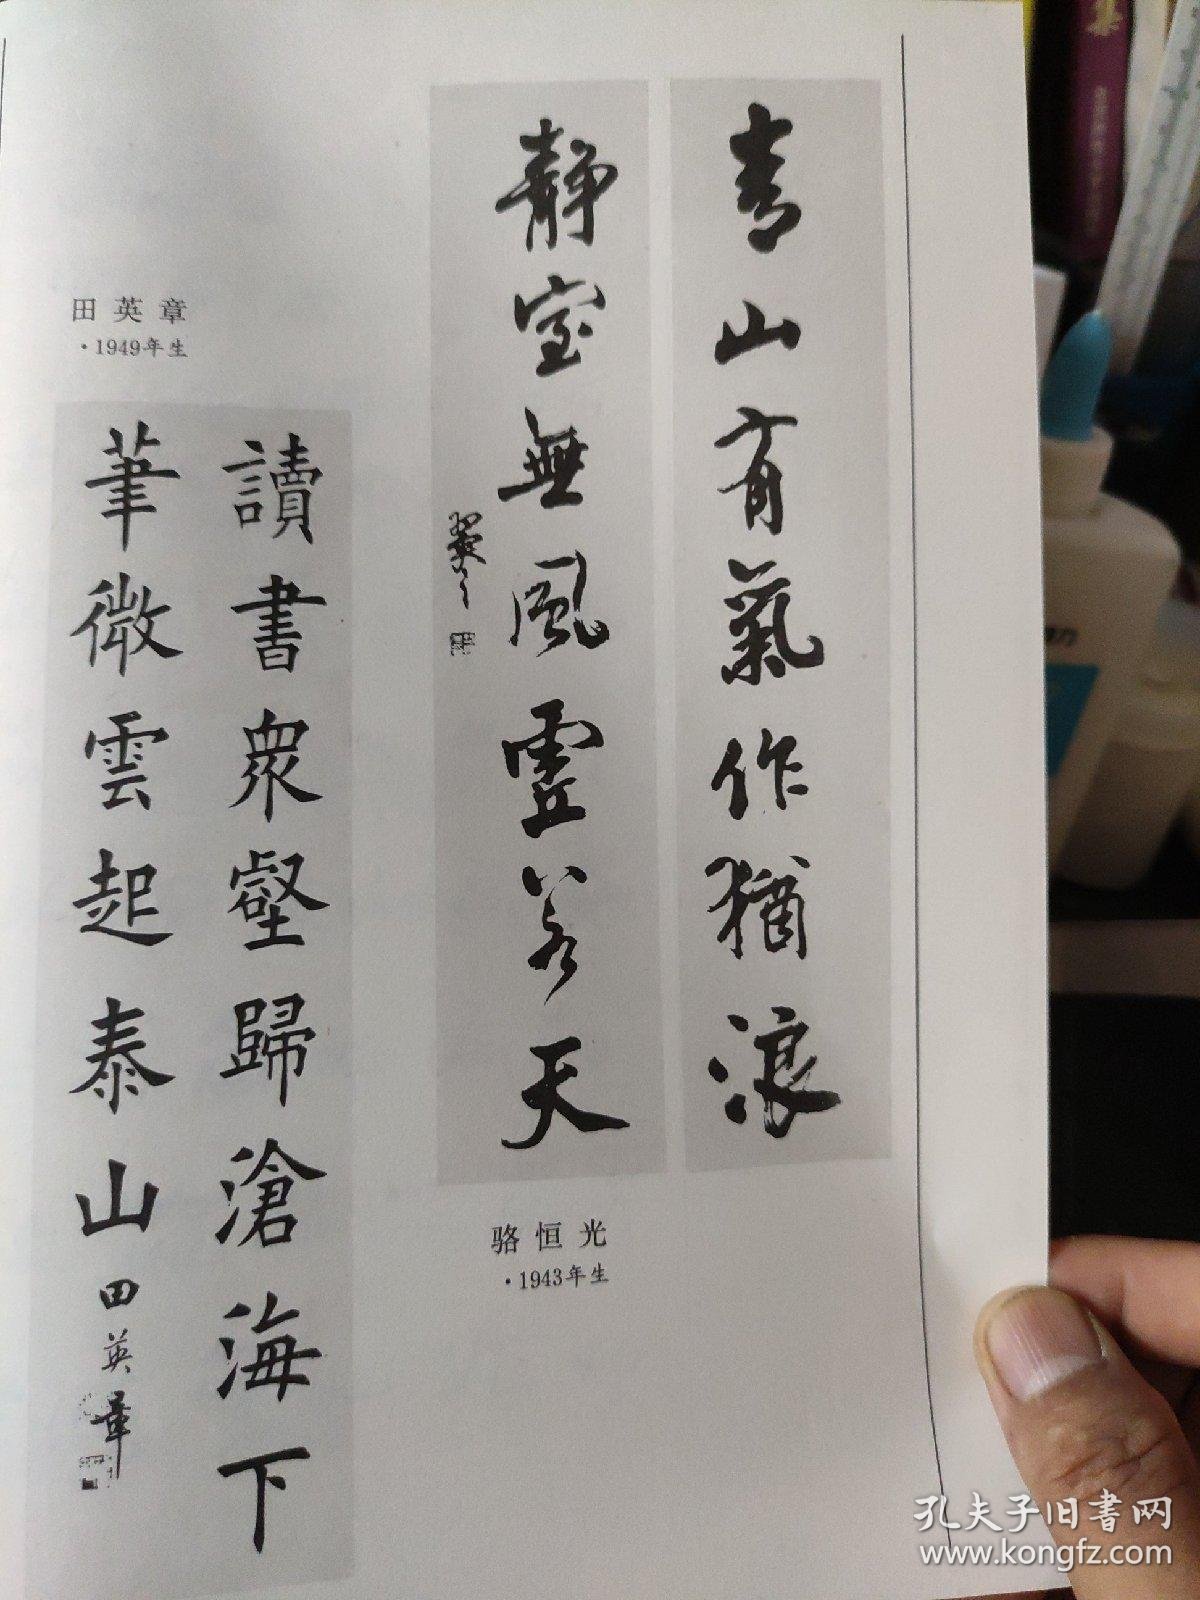 青山有氣作猶浪
靜室無風虛若天
骆恒光
·1943年生
田英章
·1949年生
讀書衆壑歸滄海下
筆微雲起泰山
田英章
孔夫子旧书网
www.kongfz.com